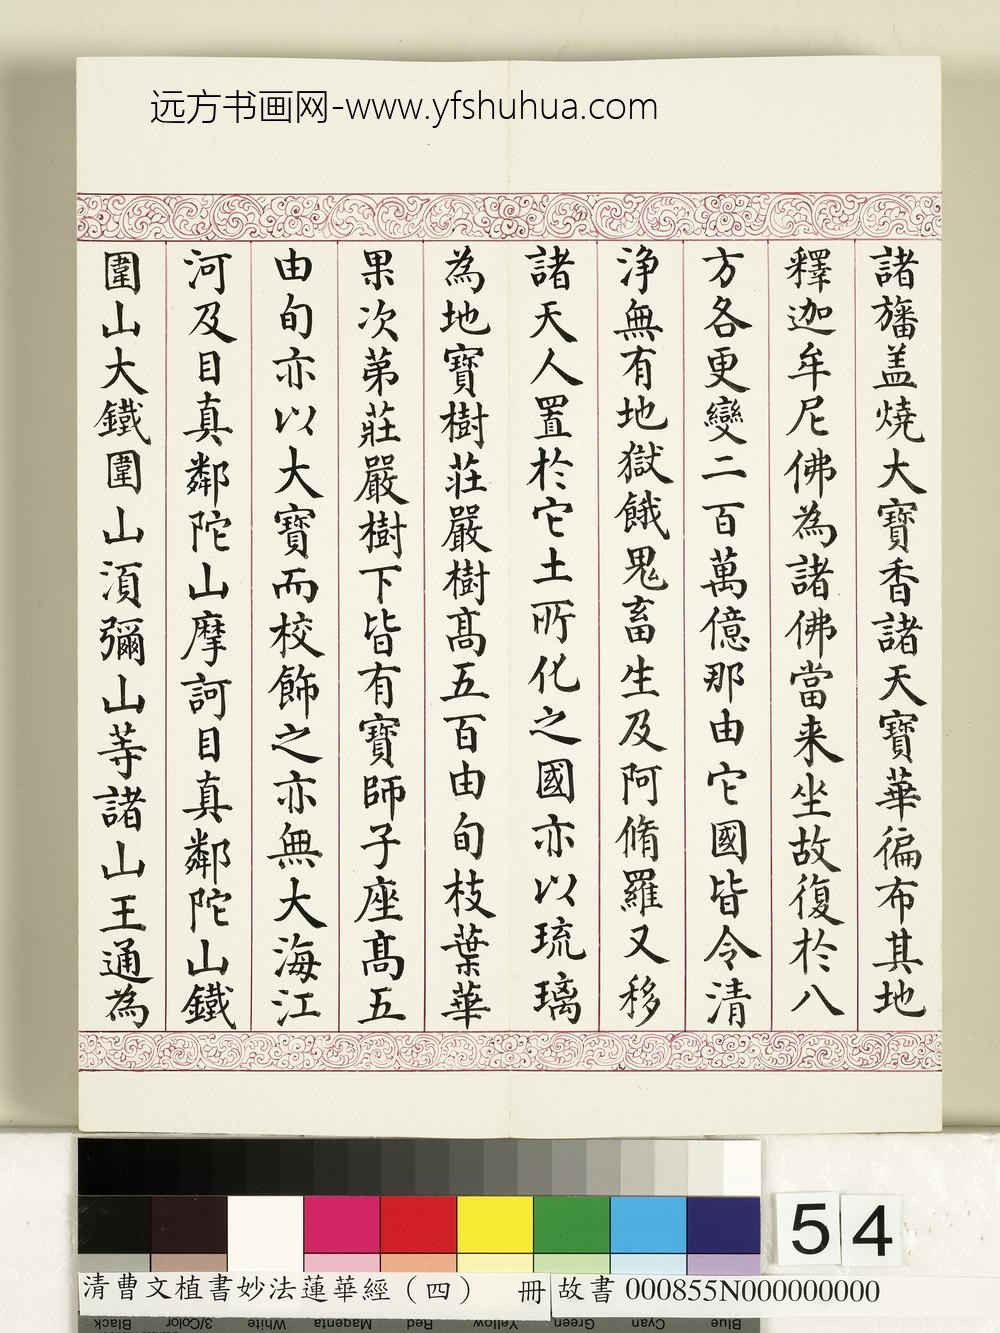 远方书画网-www.yfshuhua.com
諸旛盖燒大寶香諸天寶華徧布其地
釋迦牟尼佛為諸佛當来坐故復於八
方各更變二百萬億那由它國皆令清
淨無有地獄餓鬼畜生及阿脩羅又移
諸天人置於它土所化之國亦以琉璃
為地寶樹莊嚴樹髙五百由旬枝葉華
果次苐莊嚴樹下皆有寶師子座髙五
由旬亦以大寶而校飾之亦無大海江
河及目真鄰陀山摩訶目真鄰陀山鐵
圍山大鐵圍山湏彌山等諸山王通為
54
清曹文植書妙法蓮華經（四） 冊 故書 000855N000000000
Black 3/Color White Magenta Red Yellow Green Cyan Blue